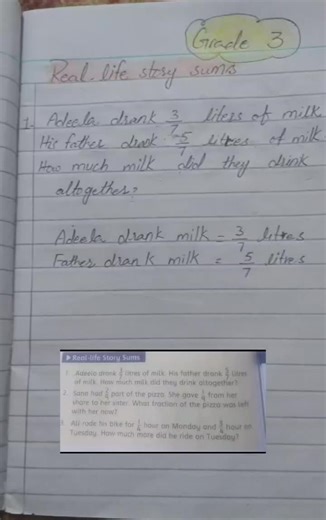 Grade 3
Real-life story sums
1- Adeela drank 3/7 liters of milk.
His father drank 5/7 litres of milk
How much milk did they drink
altogether?
Adeela drank milk = 3/7 litres
Father drank milk = 5/7 litres
Real-life Story Sums
1. Adeela drank litres of milk. His father drank litres
of milk. How much milk did they drink altogether?
2. Sana had part of the pizza. She gave from her
share to her sister. What fraction of the pizza was left
with her now?
3. Ali rode his bike for hour on Monday and hour on
Tuesday. How much more did he ride on Tuesday?